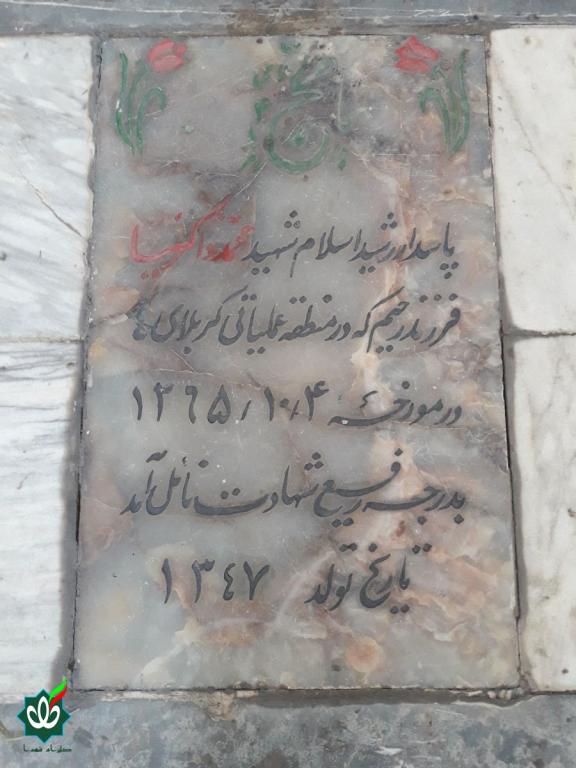 پاسدار رشید اسلام شهید محمد
فرزند رحیم که در منطقه عملیاتی کربلای ۴
در مورخهٔ ۱۳۶۵/۱۰/۴
بدرجه رفیع شهادت نائل آمد
تاریخ تولد ۱۳۴۷